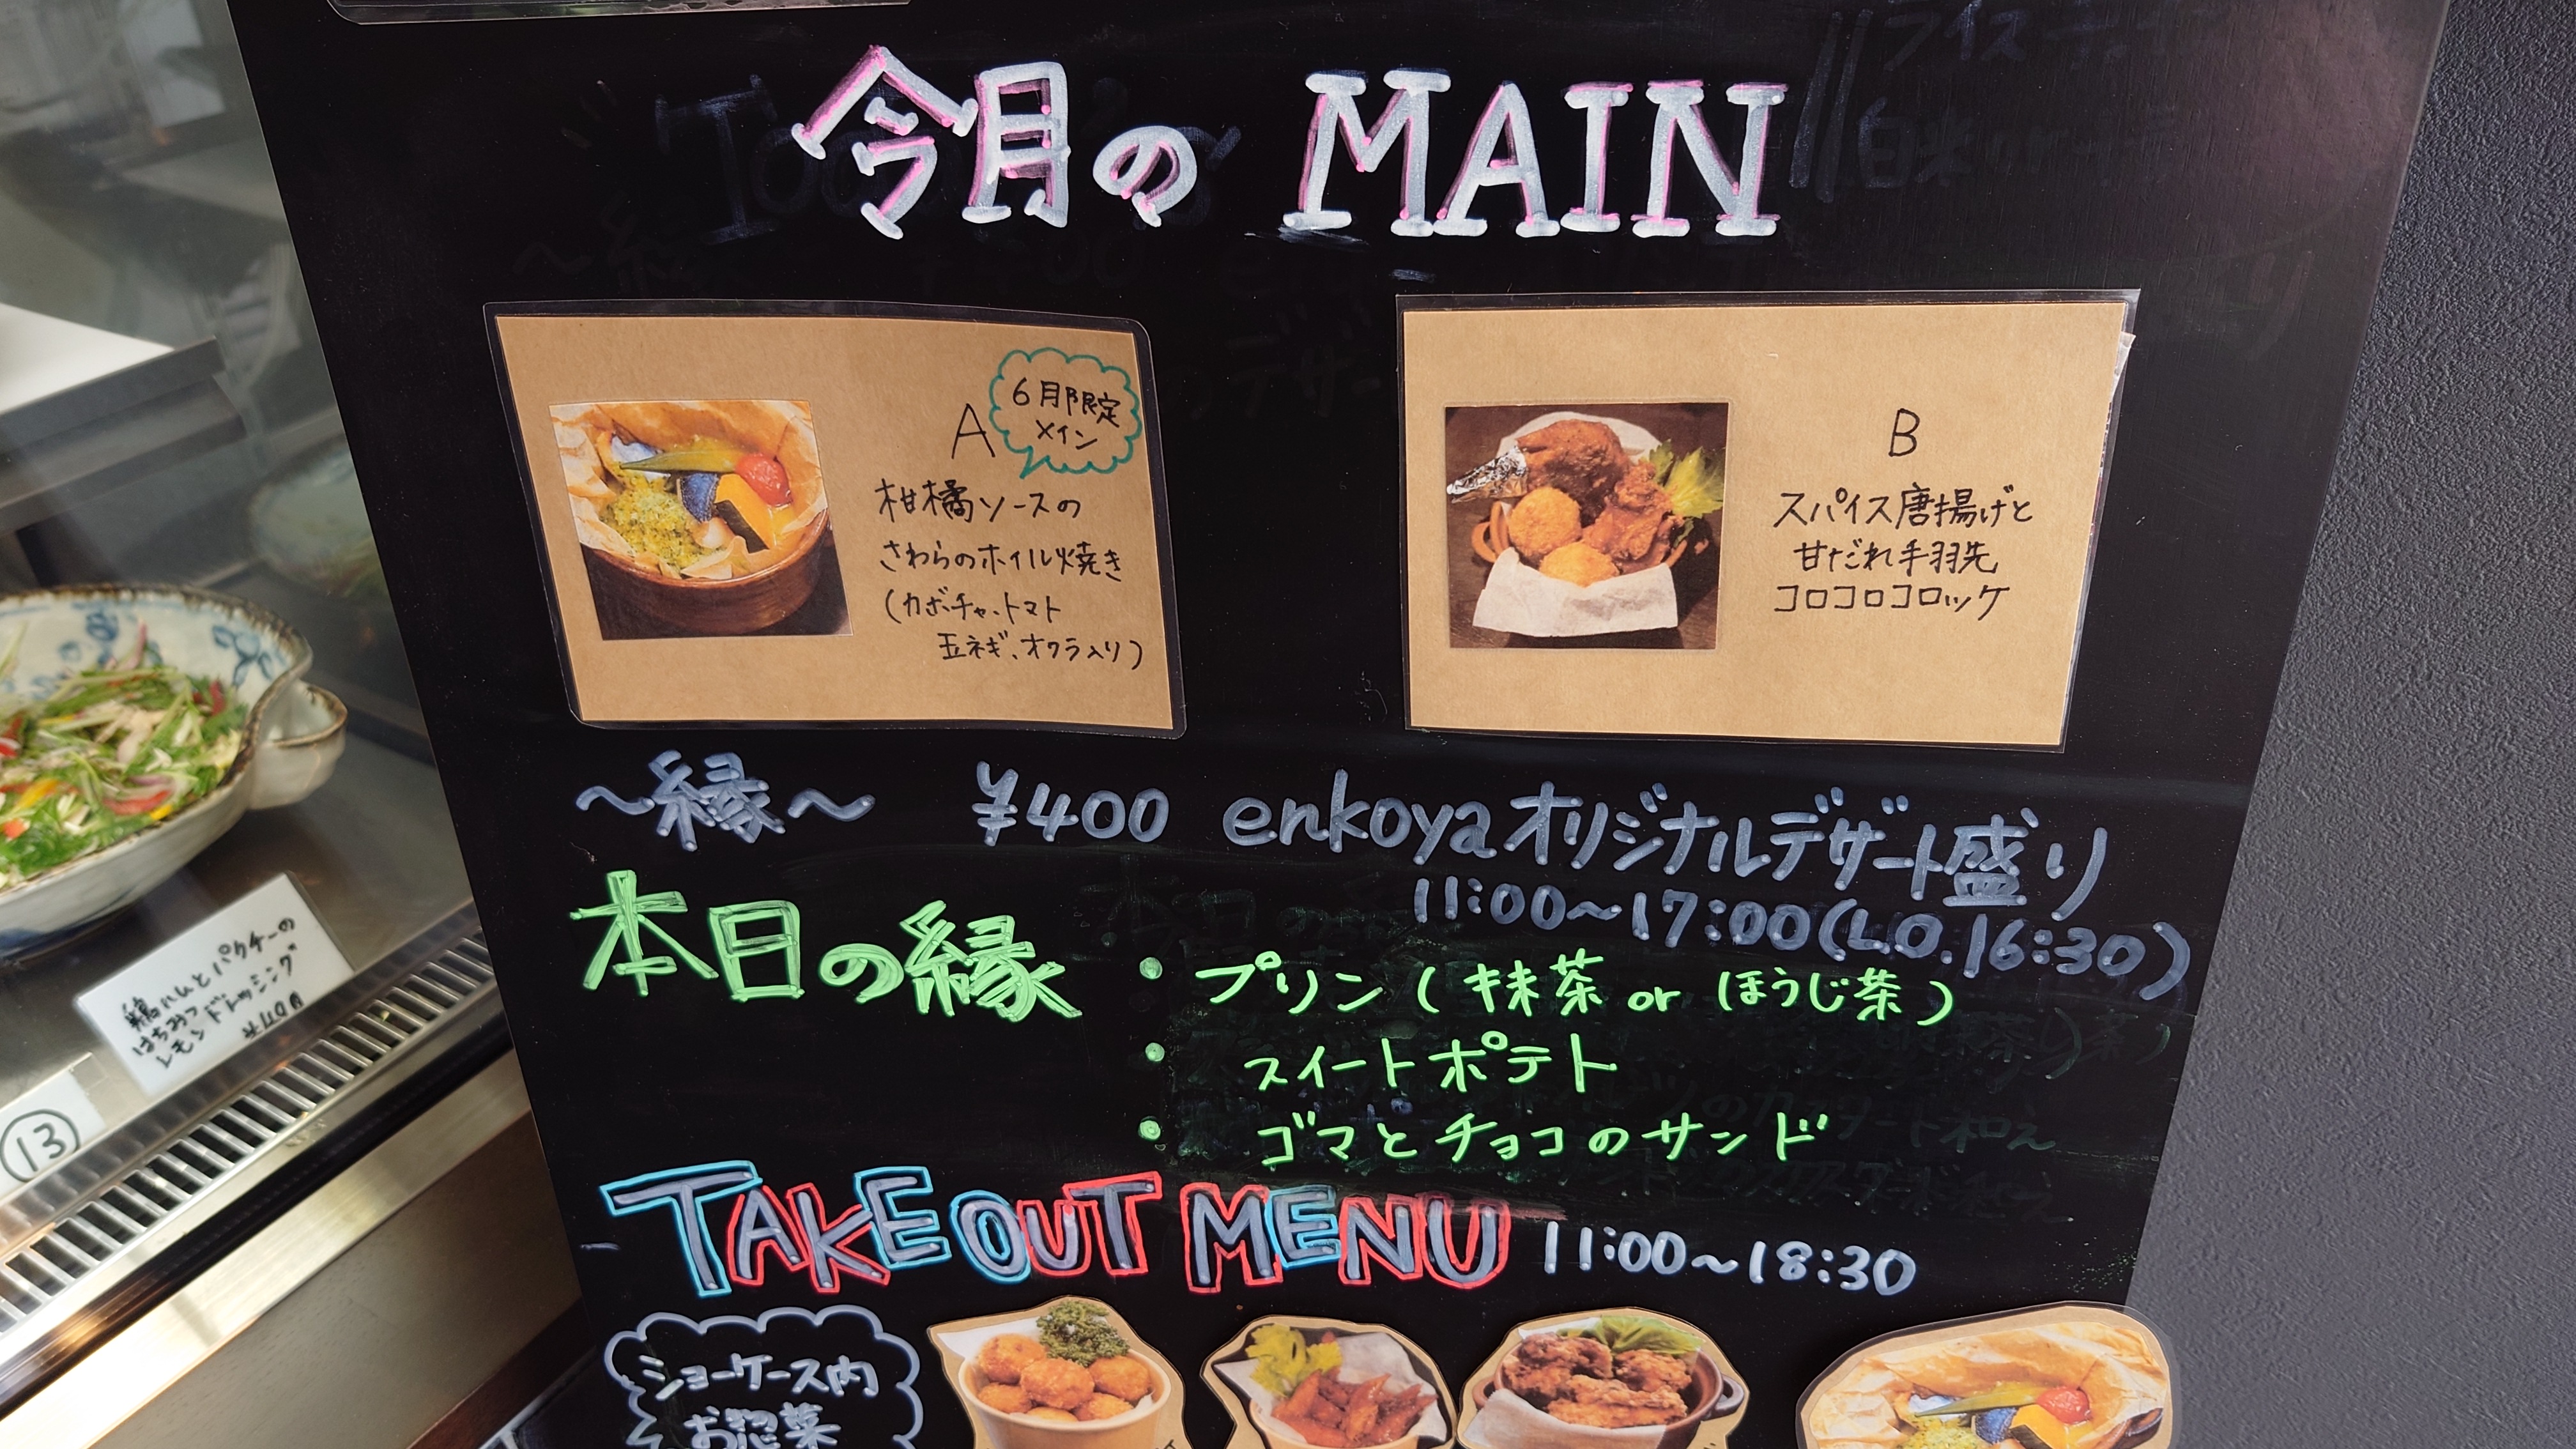 今月の MAIN
A
6月限定
メイン
柑橘ソースの
さわらのホイル焼き
(カボチャ、トマト
玉ネギ、オクラ入り)
B
スパイス唐揚げと
甘だれ手羽先
コロコロコロッケ
～縁～ ¥400 enkoyaオリジナルデザート盛り
11:00～17:00(L.O.16:30)
本日の縁
・プリン(抹茶 or ほうじ茶)
・スイートポテト
・ゴマとチョコのサンド
TAKE OUT MENU 11:00～18:30
ショーケース内
お惣菜
鶏ハムとパクチーの
はちみつ
レモンドレッシング
¥490
13